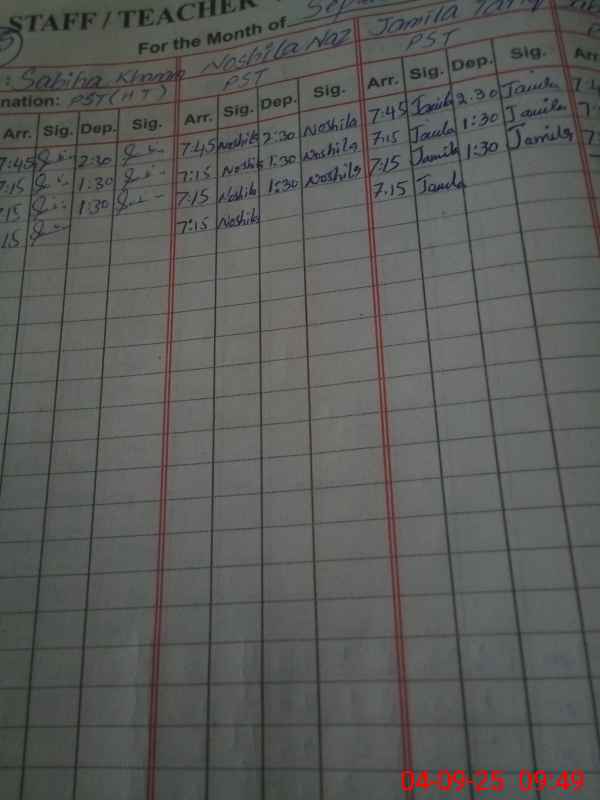 STAFF / TEACHER
For the Month of
: Sabiha Khanam Noshila Naz Jamila Tariq
nation: PST (HT) PST PST
Arr. Sig. Dep. Sig. Arr. Sig. Dep. Sig. Arr. Sig. Dep. Sig. Arr.
7:45 2:30 7:45 Noshila 2:30 Noshila 7:45 Jamila 2.30 Jamila
7:15 1:30 7:15 Noshila 1:30 Noshila 7:15 Jamila 1:30 Jamila
7:15 1:30 7:15 Noshila 1:30 Noshila 7:15 Jamila 1:30 Jamila
15 7:15 Noshila 7.15 Jamila
04-09-25 09:49